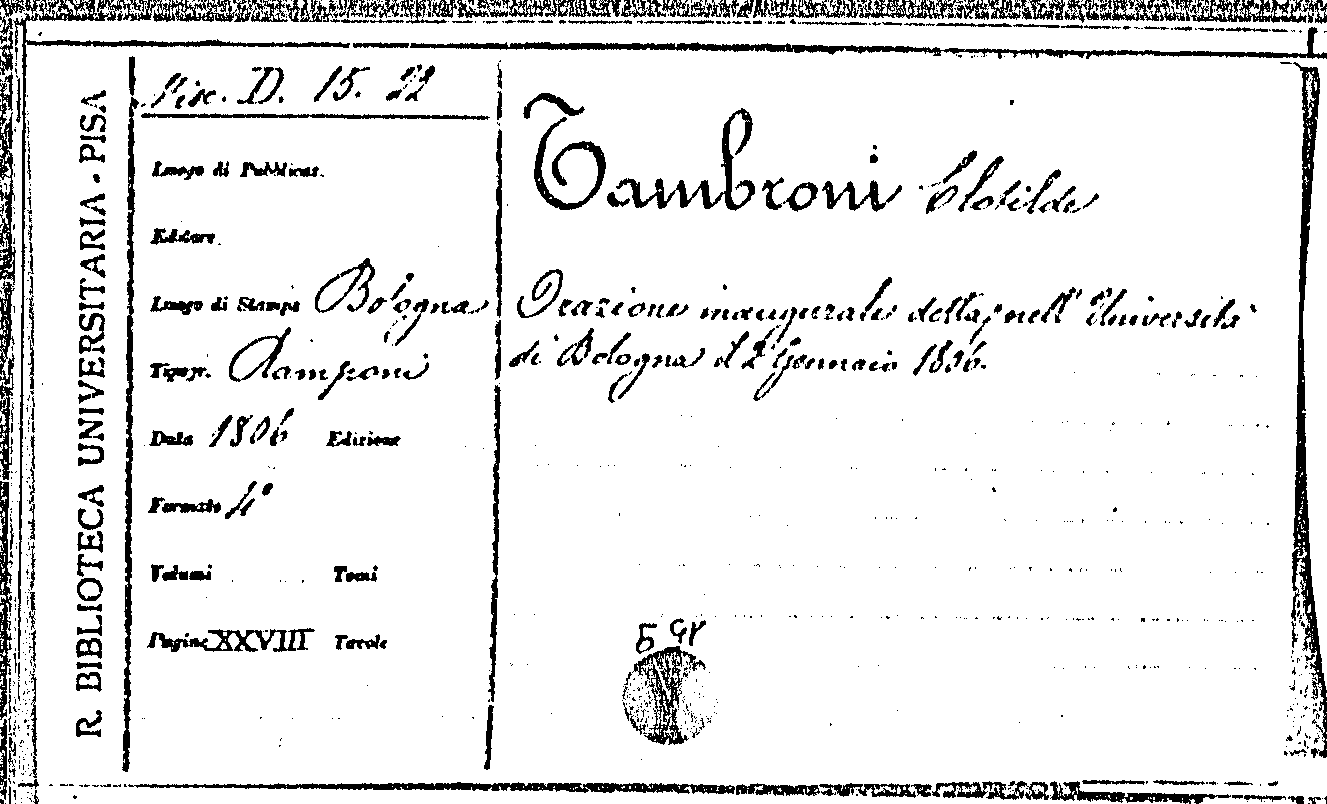 R. BIBLIOTECA UNIVERSITARIA - PISA
Misc. D. 15. 22
Luogo di Pubblicaz.
Editore
Luogo di Stampa Bologna
Tipogr. Ramponi
Data 1806 Edizione
Formato 4°
Volumi Tomi
Pagine XXVIII Tavole
Tambroni Clotilde
Orazione inaugurale detta nell' Università
di Bologna il 2 Gennaio 1806.